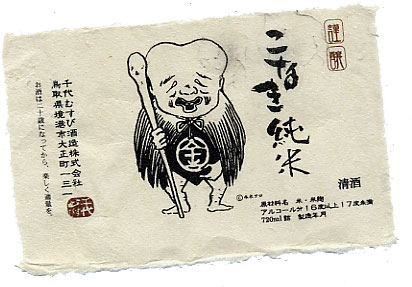 謹醸
こなき純米
清酒
原材料名 米・米麹
アルコール分16度以上17度未満
720ml詰 製造年月
©水木プロ
金
千代むすび酒造株式会社
鳥取県境港市大正町一三一
千代むすび
お酒は二十歳になってから、楽しく適量を。